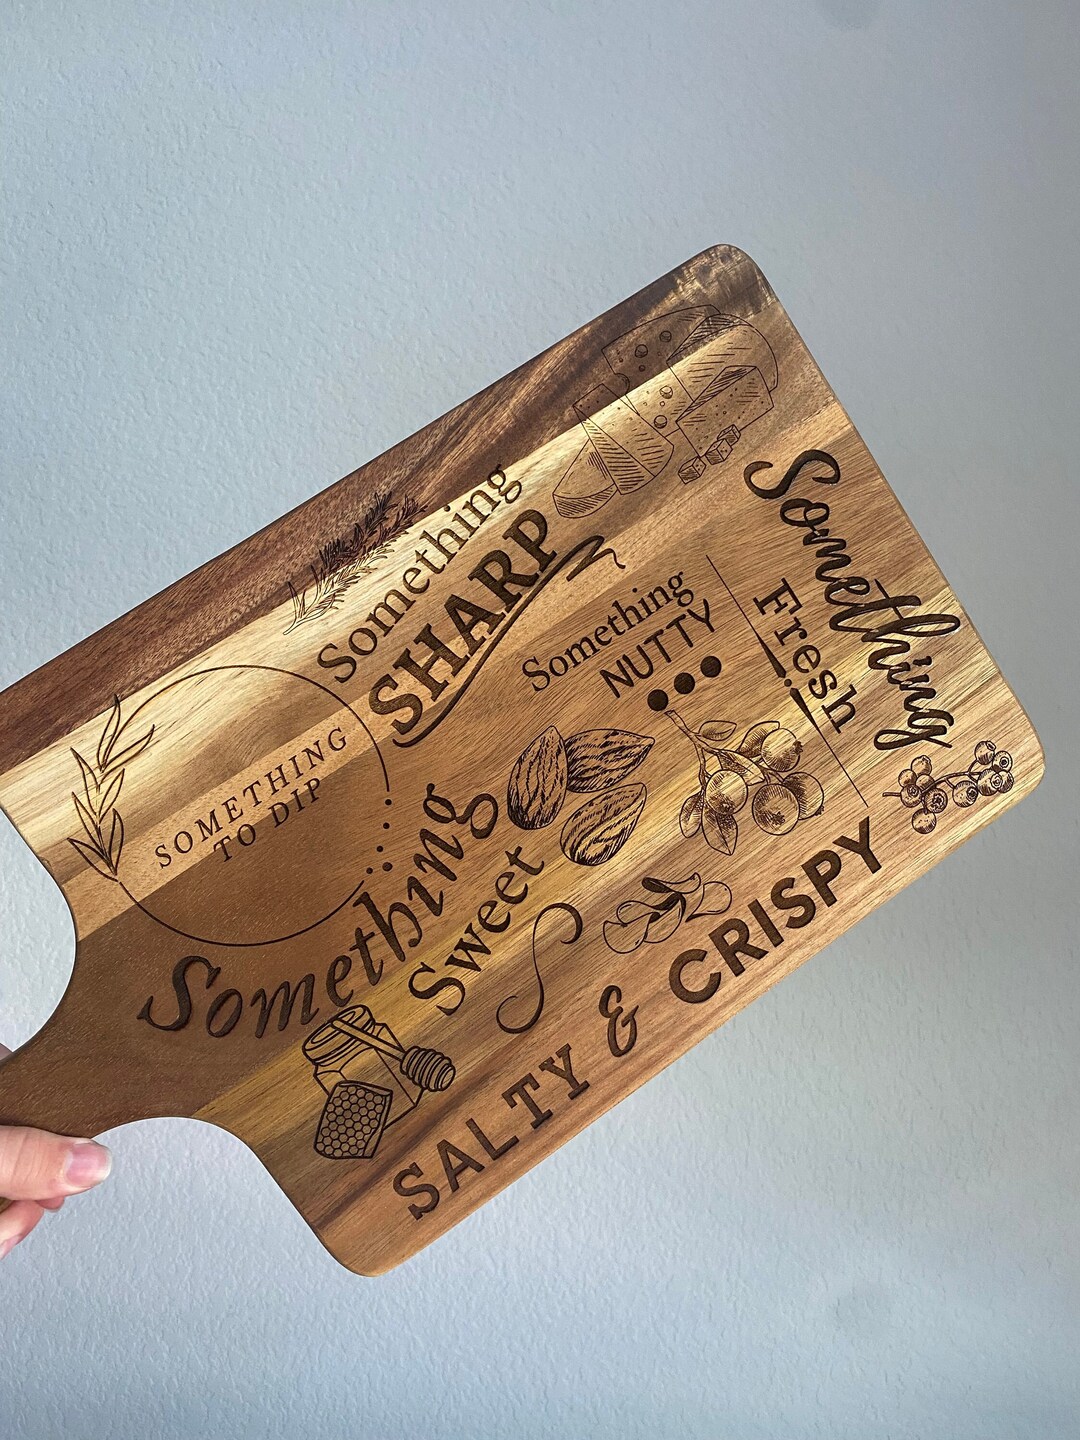 Something
SHARP
SOMETHING
TO DIP
Something
NUTTY
Something
Fresh
Something
Sweet
SALTY & CRISPY